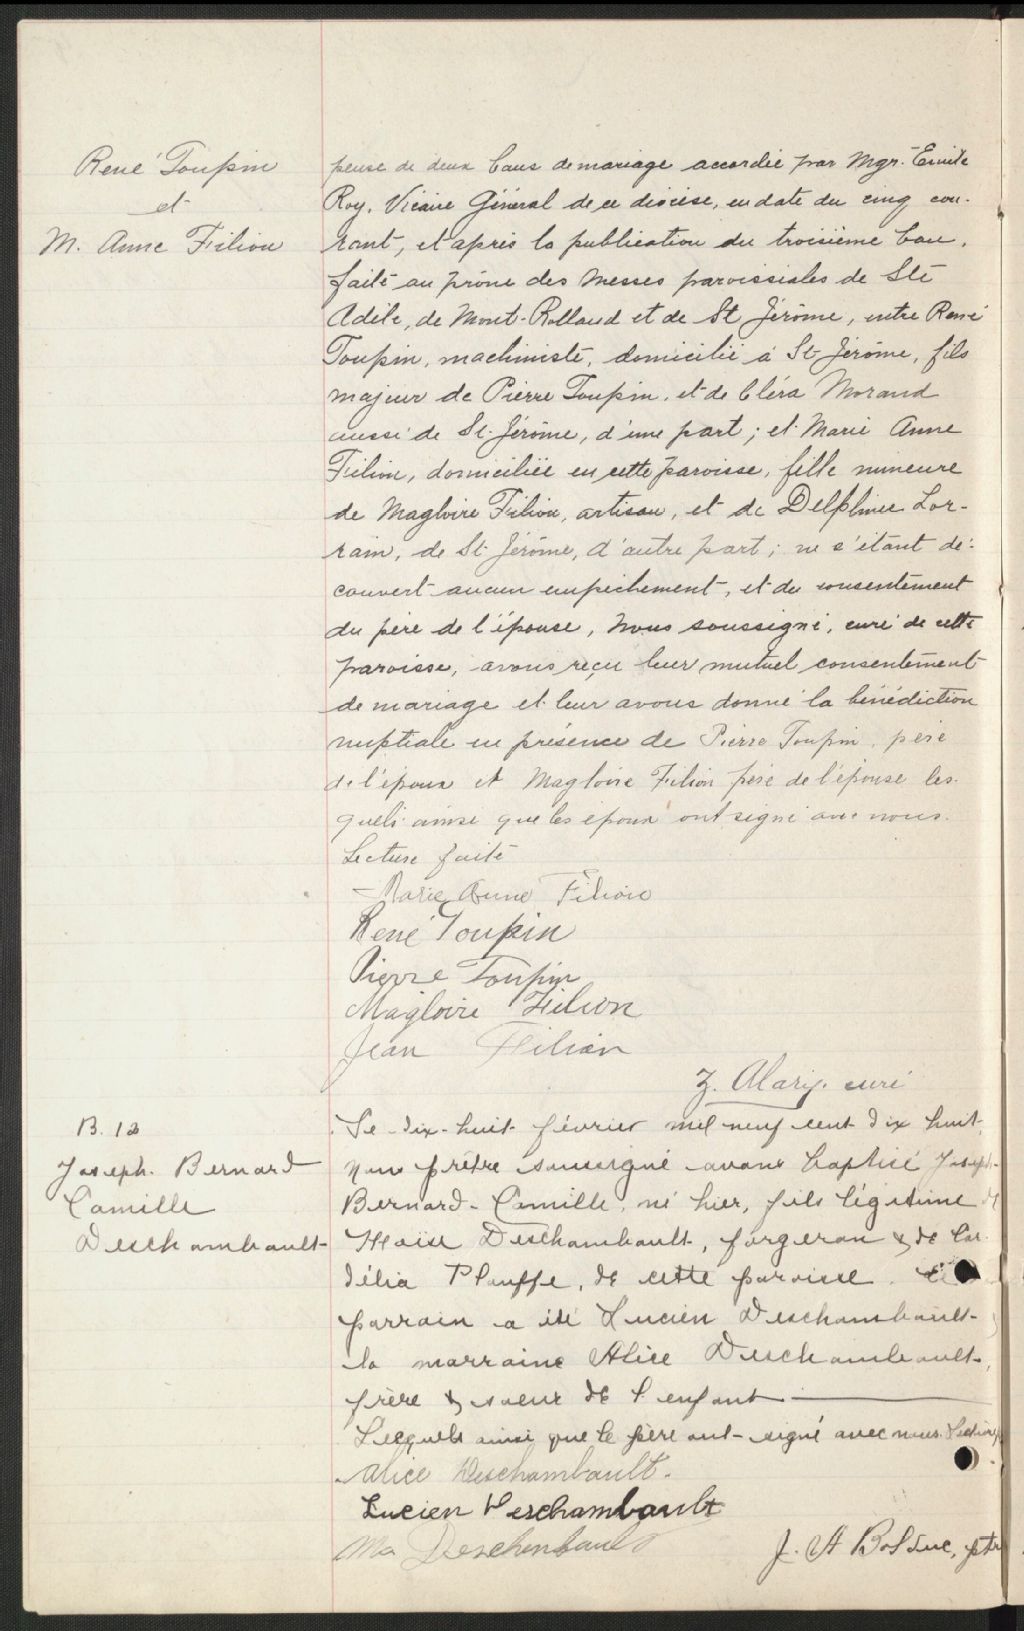 René Toupin
et
M. Anne Filion
pense de deux bans de mariage accordée par Mgr. Emile
Roy, Vicaire Général de ce diocèse, en date du cinq cou-
rant, et après la publication du troisième ban,
faite au prône des messes paroissiales de Ste
Adèle, de Mont-Rolland et de St Jérôme, entre René
Toupin, machiniste, domicilié à St Jérôme, fils
majeur de Pierre Toupin, et de Cléra Morand
aussi de St. Jérôme, d'une part; et Marie Anne
Filion, domiciliée en cette paroisse, fille mineure
de Magloire Filion, artisan, et de Delphine Lor-
rain, de St Jérôme, d'autre part; ne s'étant dé-
couvert aucun empêchement, et du consentement
du père de l'épouse, Nous soussigné, curé de cette
paroisse, avons reçu leur mutuel consentement
de mariage et leur avons donné la bénédiction
nuptiale en présence de Pierre Toupin, père
de l'époux et Magloire Filion père de l'épouse les-
quels ainsi que les époux ont signé avec nous.
Lecture faite
Marie Anne Filion
René Toupin
Pierre Toupin
Magloire Filion
Jean Filion
Z. Alary. curé
B. 12
Joseph. Bernard
Camille
Deschambault
Le dix-huit février mil neuf cent dix huit,
Nous prêtre soussigné avons baptisé Joseph-
Bernard-Camille, né hier, fils légitime de
Deschambault, forgeron & de Cor-
délia Plouffe, de cette paroisse. Le
parrain a été Lucien Deschambault-
la marraine Alice Deschambault,
frère & soeur de l'enfant
Lesquels ainsi que le père ont signé avec nous. Lecture
Alice Deschambault.
Lucien Deschambault
Deschenbault
J. A Bolduc, ptr